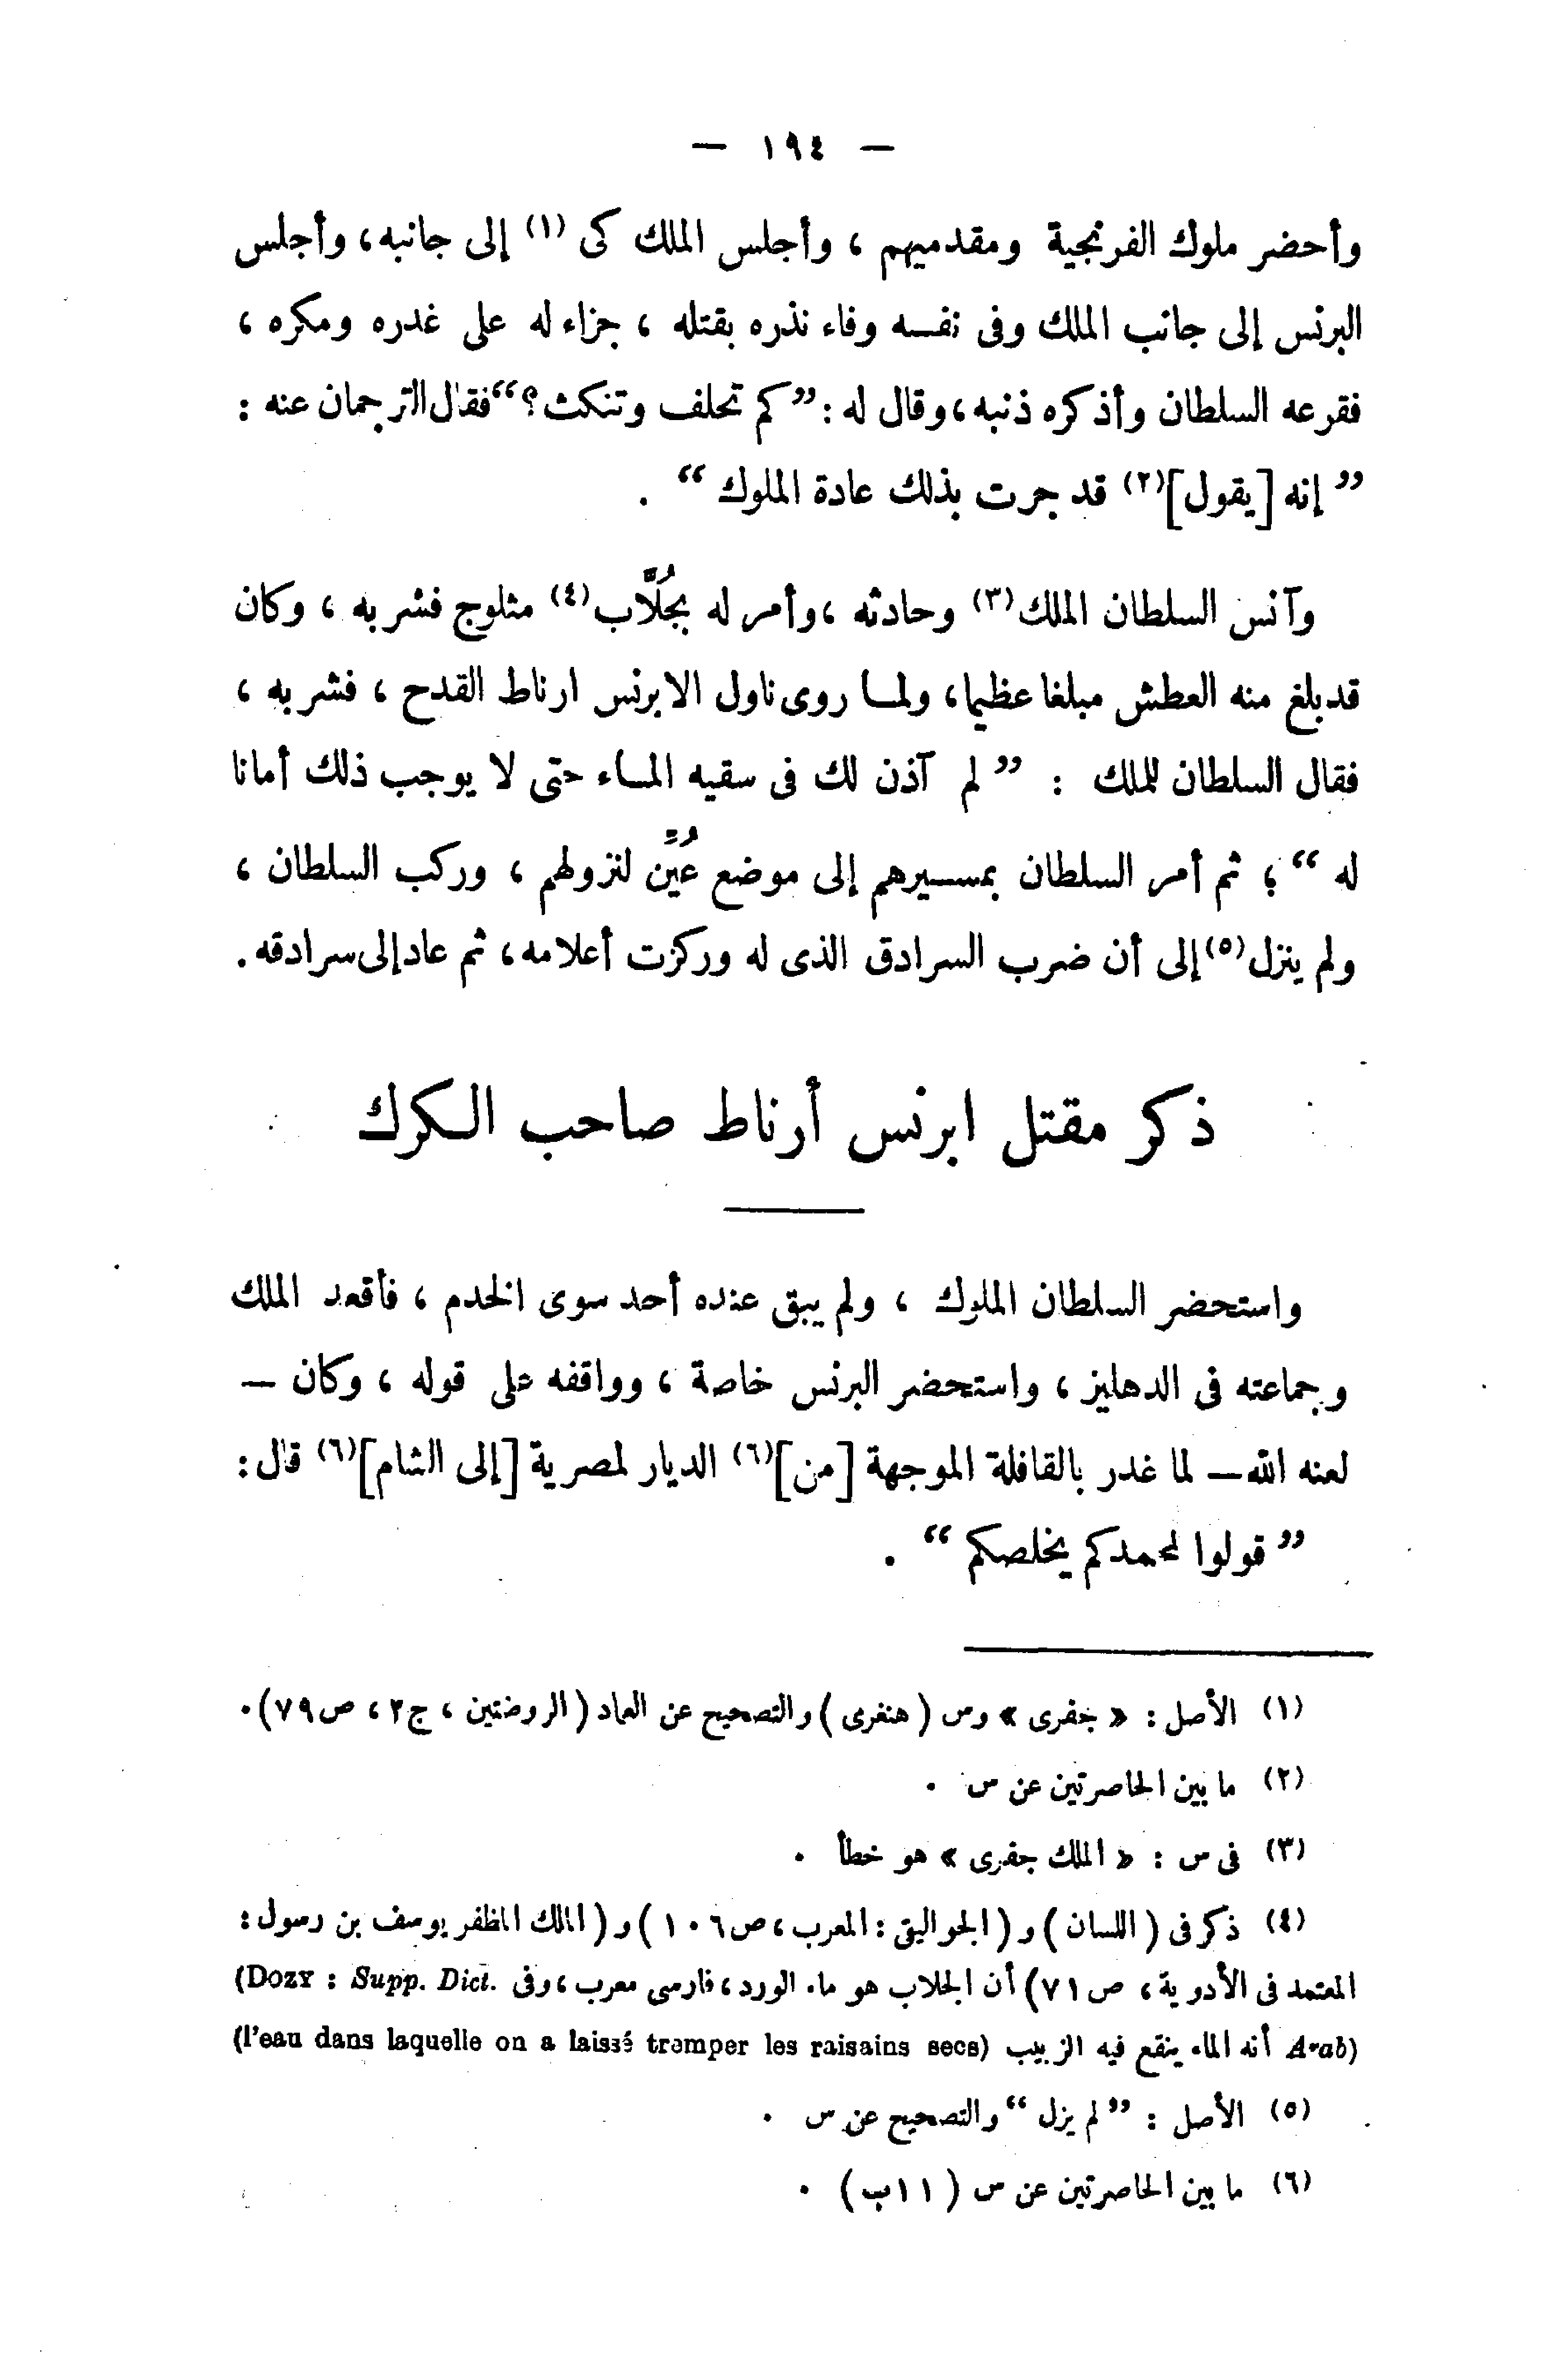 — ١٩٤ —
وأحضر ملوك الفرنجية ومقدميهم ، وأجلس الملك كى (١) إلى جانبه ، وأجلس
البرنس إلى جانب الملك وفى نفسه وفاء نذره بقتله ، جزاء له على غدره ومكره ،
فقرعه السلطان وأذكره ذنبه ، وقال له : ”كم تحلف وتنكث ؟“ فقال الترجمان عنه :
” إنه [يقول](٢) قد جرت بذلك عادة الملوك “ .
وآنس السلطان الملك(٣) وحادثه ، وأمر له بجُلَّاب(٤) مثلوج فشربه ، وكان
قد بلغ منه العطش مبلغا عظيما ، ولما روى ناول الابرنس ارناط القدح ، فشربه ،
فقال السلطان للملك : ” لم آذن لك فى سقيه الماء حتى لا يوجب ذلك أمانا
له “ ؛ ثم أمر السلطان بمسيرهم إلى موضع عُيِّن لنزولهم ، وركب السلطان ،
ولم ينزل(٥) إلى أن ضرب السرادق الذى له وركزت أعلامه ، ثم عاد إلى سرادقه .
ذكر مقتل ابرنس أرناط صاحب الكرك
واستحضر السلطان الملوك ، ولم يبق عنده أحد سوى الخدم ، فأقعد الملك
وجماعته فى الدهليز ، واستحضر البرنس خاصة ، وواقفه على قوله ، وكان —
لعنه الله — لما غدر بالقافلة الموجهة [من](٦) الديار لمصرية [إلى الشام](٦) قال :
” قولوا لمحمدكم يخلصكم “ .
(١) الأصل : « جفرى » وس ( هنفرى ) والتصحيح عن العماد ( الروضتين ، ج٢ ، ص٧٩) .
(٢) ما بين الحاصرتين عن س .
(٣) فى س : « الملك جفرى » هو خطأ .
(٤) ذكر فى ( اللسان ) و ( الجواليقى : المعرب ، ص١٠٦ ) و ( الملك المظفر يوسف بن رسول :
المعتمد فى الأدوية ، ص ٧١) أن الجلاب هو ماء الورد ، فارسى معرب ، وفى (Dozy : Supp. Dict.
Arab) أنه الماء ينقع فيه الزبيب (l'eau dans laquelle on a laissé tramper les raisains secs)
(٥) الأصل : ” لم يزل “ والتصحيح عن س .
(٦) ما بين الحاصرتين عن س ( ١١ب ) .